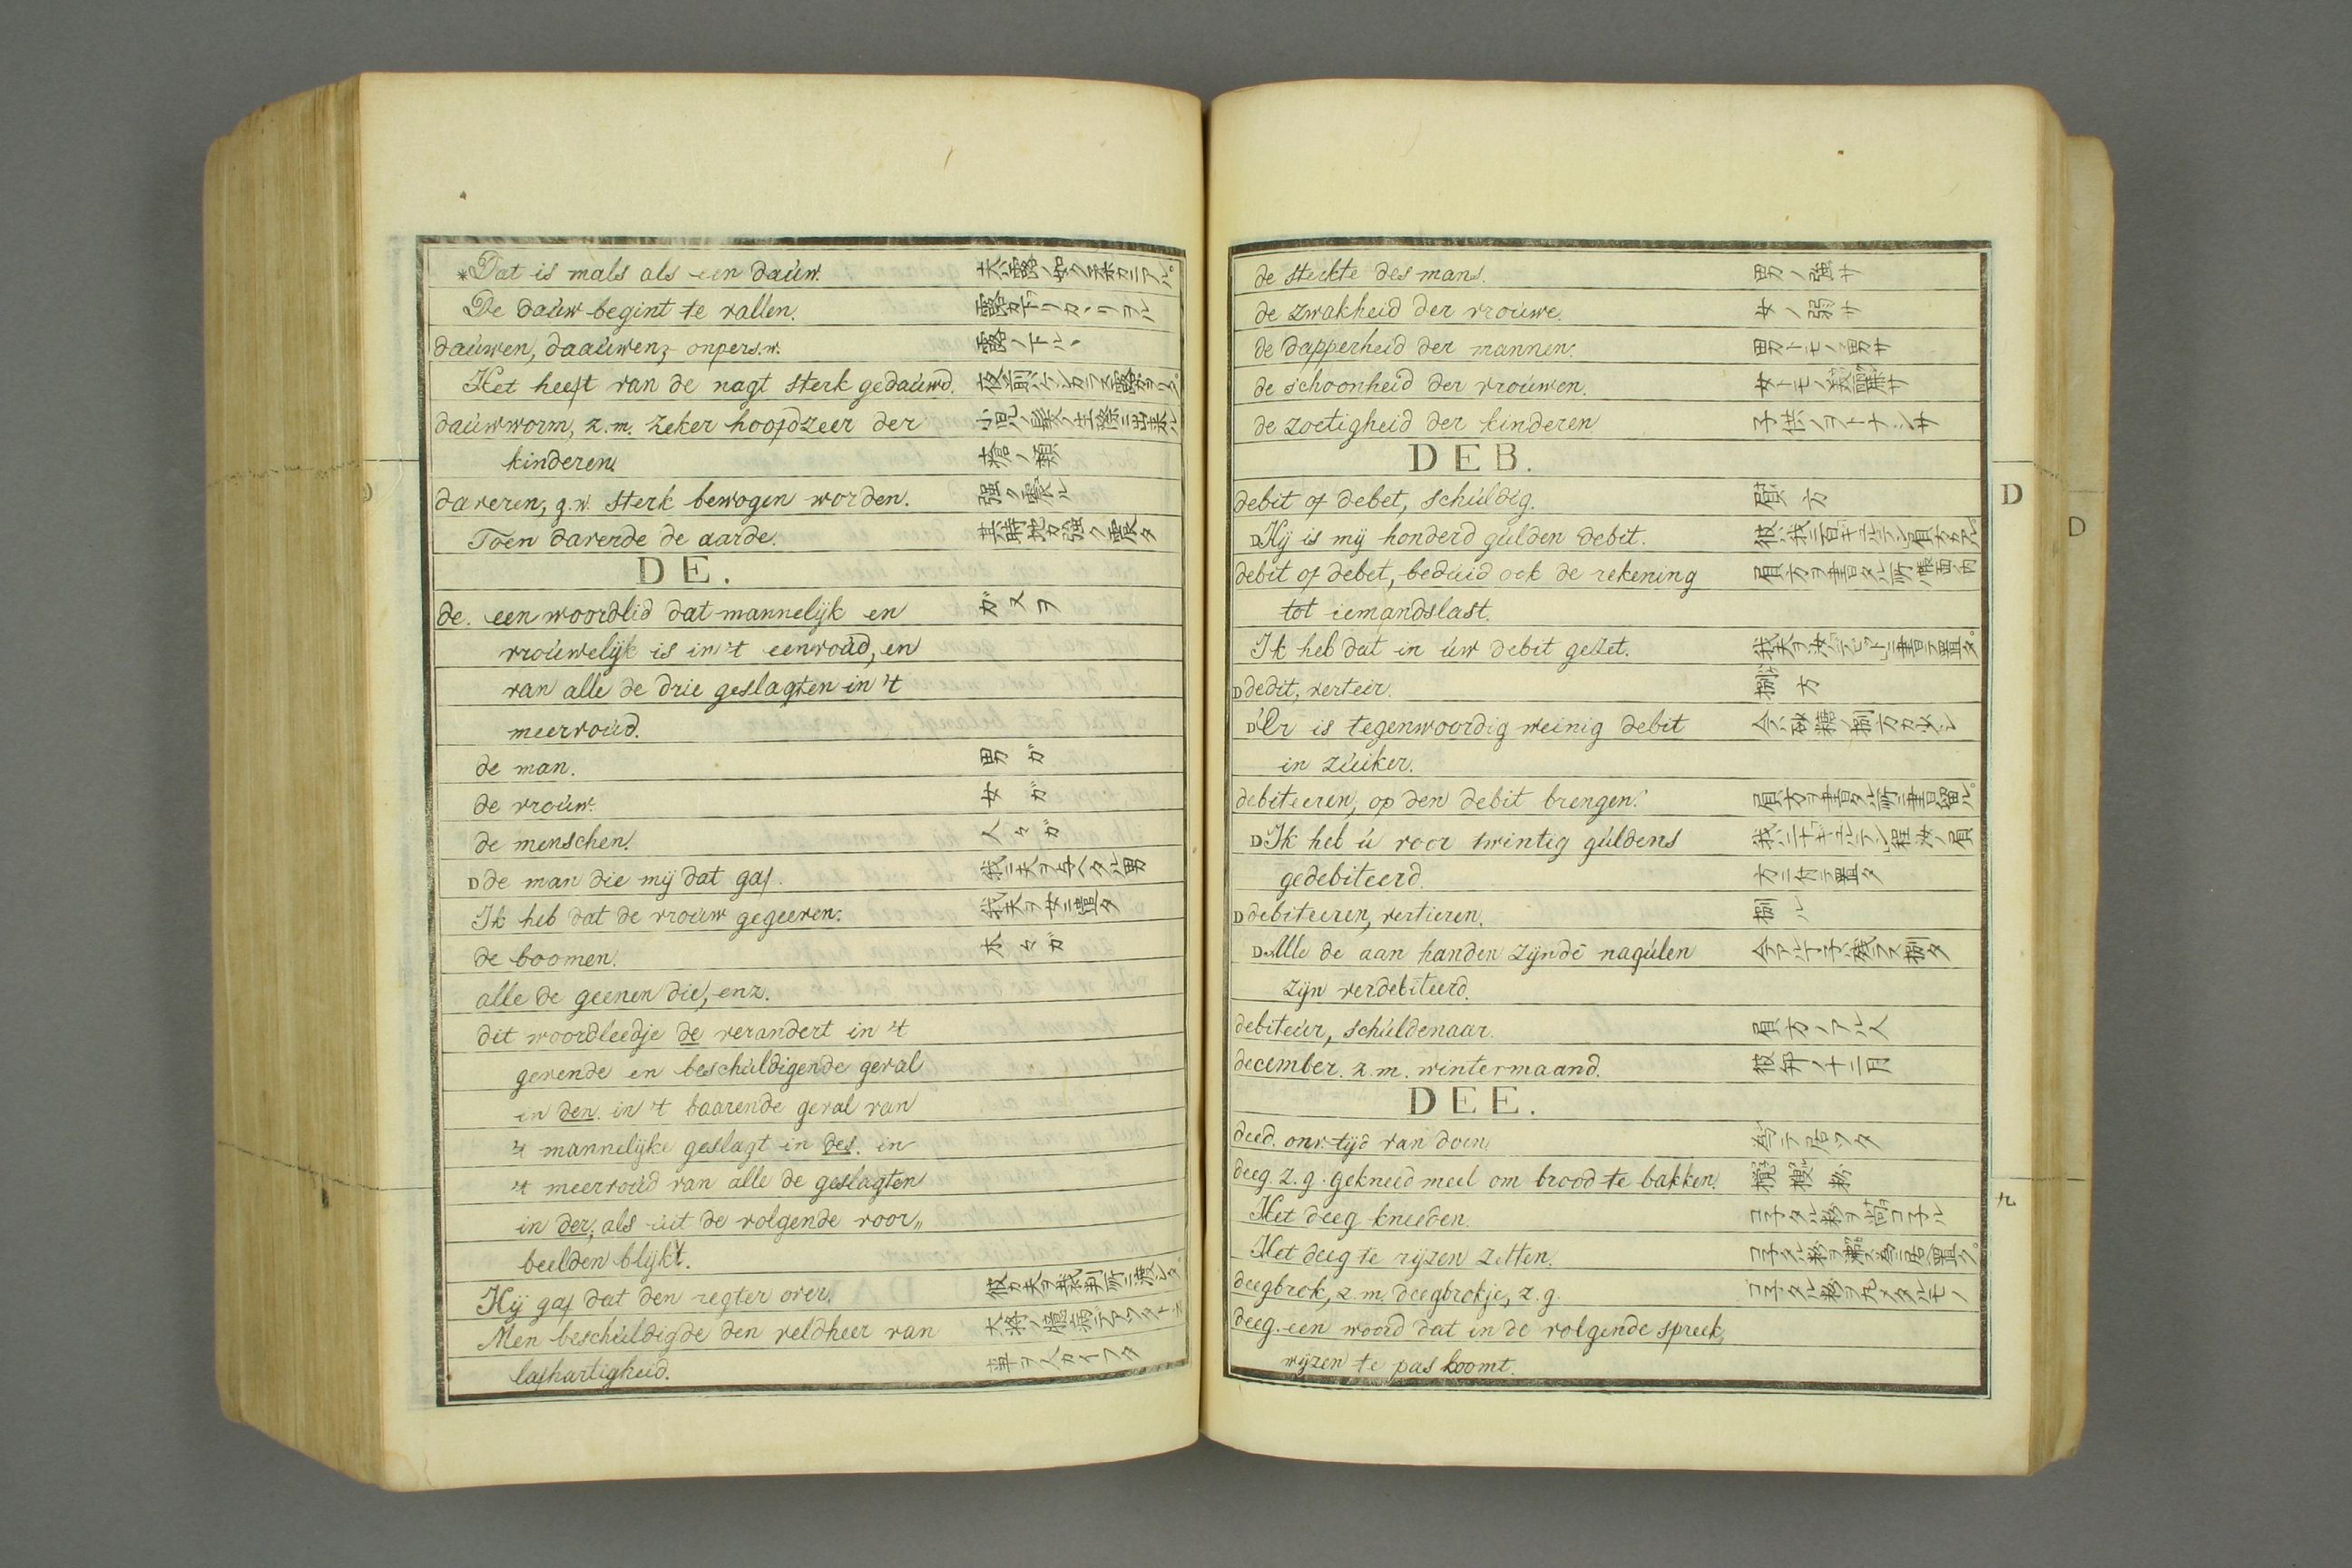 *Dat is mals als een daúw. 夫ハ露ノ如ク柔カニアル。
De daúw begint te vallen. 露ガ下リカヽリテル
daúwen, daaúwen, onpers.w. 露ノ下ル丶
Het heeft van de nagt sterk gedaúwd.
daúwworm, z.m. zeker hoofdzeer der
kinderen. 瘡ノ類
daveren, g.w. sterk bewogen worden. 強ク震ル
Toen daverde de aarde. 其時地ガ強ク震タ
DE.
de. een woordlid dat mannelijk en ガ ス ヲ
vroúwelijk is in 't eenvoúd, en
van alle de drie geslagten in 't
meervoúd.
de man. 男ガ
de vroúw. 女ガ
de menschen. 人々ガ
D de man die mij dat gaf. 我ニ夫ヲ与ヘタル男
Ik heb dat de vroúw gegeeven. 我夫ヲ女ニ遣タ
de boomen. 木々ガ
alle de geenen die, enz.
dit woordleedje de verandert in 't
gevende en beschúldigende geval
in den. in 't baarende geval van
't mannelijke geslagt in des. in
't meervoúd van alle de geslagten
in der, als úit de volgende voor„
beelden blijkt.
Hij gaf dat den regter over.
Men beschúldigde den veldheer van
lafhartigheid. 事ヲ人ガイフタ
de sterkte des mans. 男ノ強サ
de zwakheid der vroúwe. 女ノ弱サ
de dapperheid der mannen. 男トモノ勇サ
de schoonheid der vroúwen.
de zoetigheid der kinderen 子供ノヲトナシサ
DEB.
debit of debet, schúldig. 負方
D Hij is mij honderd gúlden debit.
debit of debet, bedúid ook de rekening
tot iemandslast.
Ik heb dat in úw debit gezet.
D dedit, vertier. 捌方
D Er is tegenwoordig weinig debit 今ハ砂糖ノ捌方ガ少シ
in zúiker.
debiteeren, op den debit brengen.
D Ik heb ú voor twintig gúldens
gedebiteerd.
D debiteeren, vertieren. 捌ル
D Alle de aan handen zijnde nagúlen
zijn verdebiteerd.
debiteúr, schúldenaar. 負方ノアル人
december. z.m. wintermaand. 彼邦ノ十二月
DEE.
deed. onv. tijd van doen 為テ居ツタ
deeg. z.g. gekneed meel om brood te bakken.
Het deeg kneeden.
Het deeg te rijzen zetten.
deegbrok, z.m. deegbrokje, z.g. コネタル粉ヲ丸メタルモノ
deeg. een woord dat in de volgende spreek„
wijzen te pas koomt.
D
D